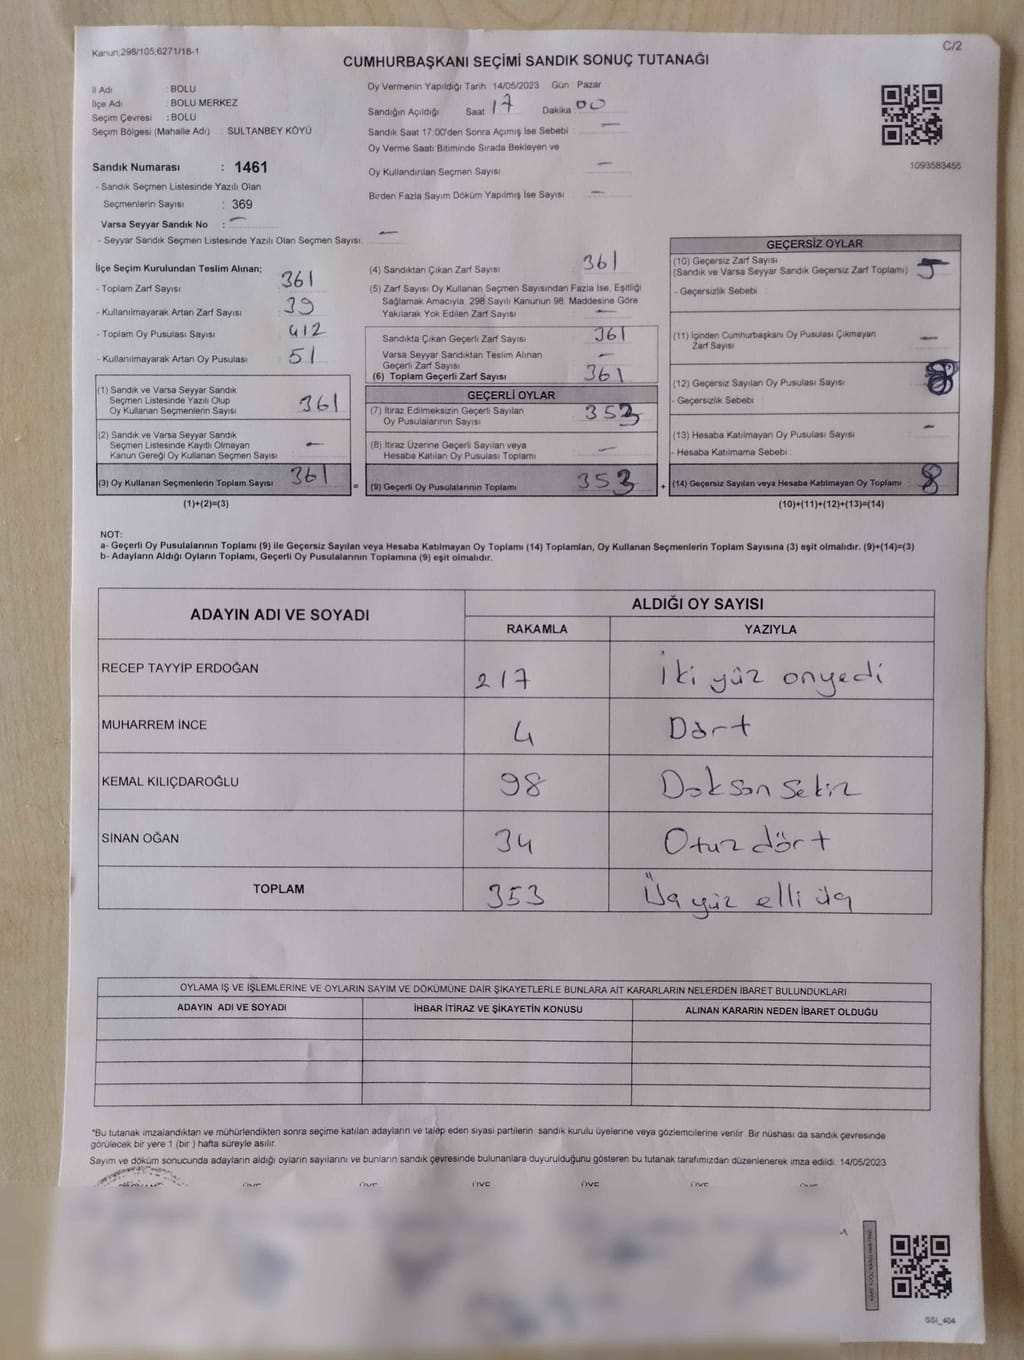 Kanun,298/105,6271/18-1
C/2
CUMHURBAŞKANI SEÇİMİ SANDIK SONUÇ TUTANAĞI
İl Adı : BOLU
İlçe Adı : BOLU MERKEZ
Seçim Çevresi : BOLU
Seçim Bölgesi (Mahalle Adı) : SULTANBEY KÖYÜ
Sandık Numarası : 1461
- Sandık Seçmen Listesinde Yazılı Olan
Seçmenlerin Sayısı : 369
Varsa Seyyar Sandık No : —
- Seyyar Sandık Seçmen Listesinde Yazılı Olan Seçmen Sayısı —
Oy Vermenin Yapıldığı Tarih 14/05/2023 Gün Pazar
Sandığın Açıldığı Saat 17 Dakika 00
Sandık Saat 17:00'den Sonra Açımış İse Sebebi : —
Oy Verme Saati Bitiminde Sırada Bekleyen ve
Oy Kullandırılan Seçmen Sayısı —
Birden Fazla Sayım Döküm Yapılmış İse Sayısı —
1093583455
İlçe Seçim Kurulundan Teslim Alınan;
- Toplam Zarf Sayısı 361
- Kullanılmayarak Artan Zarf Sayısı 39
- Toplam Oy Pusulası Sayısı 412
- Kullanılmayarak Artan Oy Pusulası 51
(1) Sandık ve Varsa Seyyar Sandık
Seçmen Listesinde Yazılı Olup
Oy Kullanan Seçmenlerin Sayısı 361
(2) Sandık ve Varsa Seyyar Sandık
Seçmen Listesinde Kayıtlı Olmayan
Kanun Gereği Oy Kullanan Seçmen Sayısı —
(3) Oy Kullanan Seçmenlerin Toplam Sayısı 361
(1)+(2)=(3)
(4) Sandıktan Çıkan Zarf Sayısı 361
(5) Zarf Sayısı Oy Kullanan Seçmen Sayısından Fazla İse, Eşitliği
Sağlamak Amacıyla, 298 Sayılı Kanunun 98. Maddesine Göre
Yakılarak Yok Edilen Zarf Sayısı —
Sandıkta Çıkan Geçerli Zarf Sayısı 361
Varsa Seyyar Sandıktan Teslim Alınan
Geçerli Zarf Sayısı —
(6) Toplam Geçerli Zarf Sayısı 361
GEÇERLİ OYLAR
(7) İtiraz Edilmeksizin Geçerli Sayılan
Oy Pusulalarının Sayısı 353
(8) İtiraz Üzerine Geçerli Sayılan veya
Hesaba Katılan Oy Pusulası Toplamı —
= (9) Geçerli Oy Pusulalarının Toplamı 353 +
GEÇERSİZ OYLAR
(10) Geçersiz Zarf Sayısı
(Sandık ve Varsa Seyyar Sandık Geçersiz Zarf Toplamı)
- Geçersizlik Sebebi :
(11) İçinden Cumhurbaşkanı Oy Pusulası Çıkmayan
Zarf Sayısı —
(12) Geçersiz Sayılan Oy Pusulası Sayısı 8
- Geçersizlik Sebebi
(13) Hesaba Katılmayan Oy Pusulası Sayısı —
- Hesaba Katılmama Sebebi :
(14) Geçersiz Sayılan veya Hesaba Katılmayan Oy Toplamı 8
(10)+(11)+(12)+(13)=(14)
NOT:
a- Geçerli Oy Pusulalarının Toplamı (9) ile Geçersiz Sayılan veya Hesaba Katılmayan Oy Toplamı (14) Toplamları, Oy Kullanan Seçmenlerin Toplam Sayısına (3) eşit olmalıdır. (9)+(14)=(3)
b- Adayların Aldığı Oyların Toplamı, Geçerli Oy Pusulalarının Toplamına (9) eşit olmalıdır.
ADAYIN ADI VE SOYADI
ALDIĞI OY SAYISI
RAKAMLA YAZIYLA
RECEP TAYYİP ERDOĞAN 217 İki yüz onyedi
MUHARREM İNCE 4 Dört
KEMAL KILIÇDAROĞLU 98 Doksan sekiz
SİNAN OĞAN 34 Otuz dört
TOPLAM 353 Üç yüz elli üç
OYLAMA İŞ VE İŞLEMLERİNE VE OYLARIN SAYIM VE DÖKÜMÜNE DAİR ŞİKAYETLERLE BUNLARA AİT KARARLARIN NELERDEN İBARET BULUNDUKLARI
ADAYIN ADI VE SOYADI İHBAR İTİRAZ VE ŞİKAYETİN KONUSU ALINAN KARARIN NEDEN İBARET OLDUĞU
*Bu tutanak imzalandıktan ve mühürlendikten sonra seçime katılan adayların ve talep eden siyasi partilerin sandık kurulu üyelerine veya gözlemcilerine verilir. Bir nüshası da sandık çevresinde
görülecek bir yere 1 (bir ) hafta süreyle asılır.
Sayım ve döküm sonucunda adayların aldığı oyların sayılarını ve bunların sandık çevresinde bulunanlara duyurulduğunu gösteren bu tutanak tarafımızdan düzenlenerek imza edildi. 14/05/2023
ÜYE ÜYE ÜYE ÜYE ÜYE
SSI_404